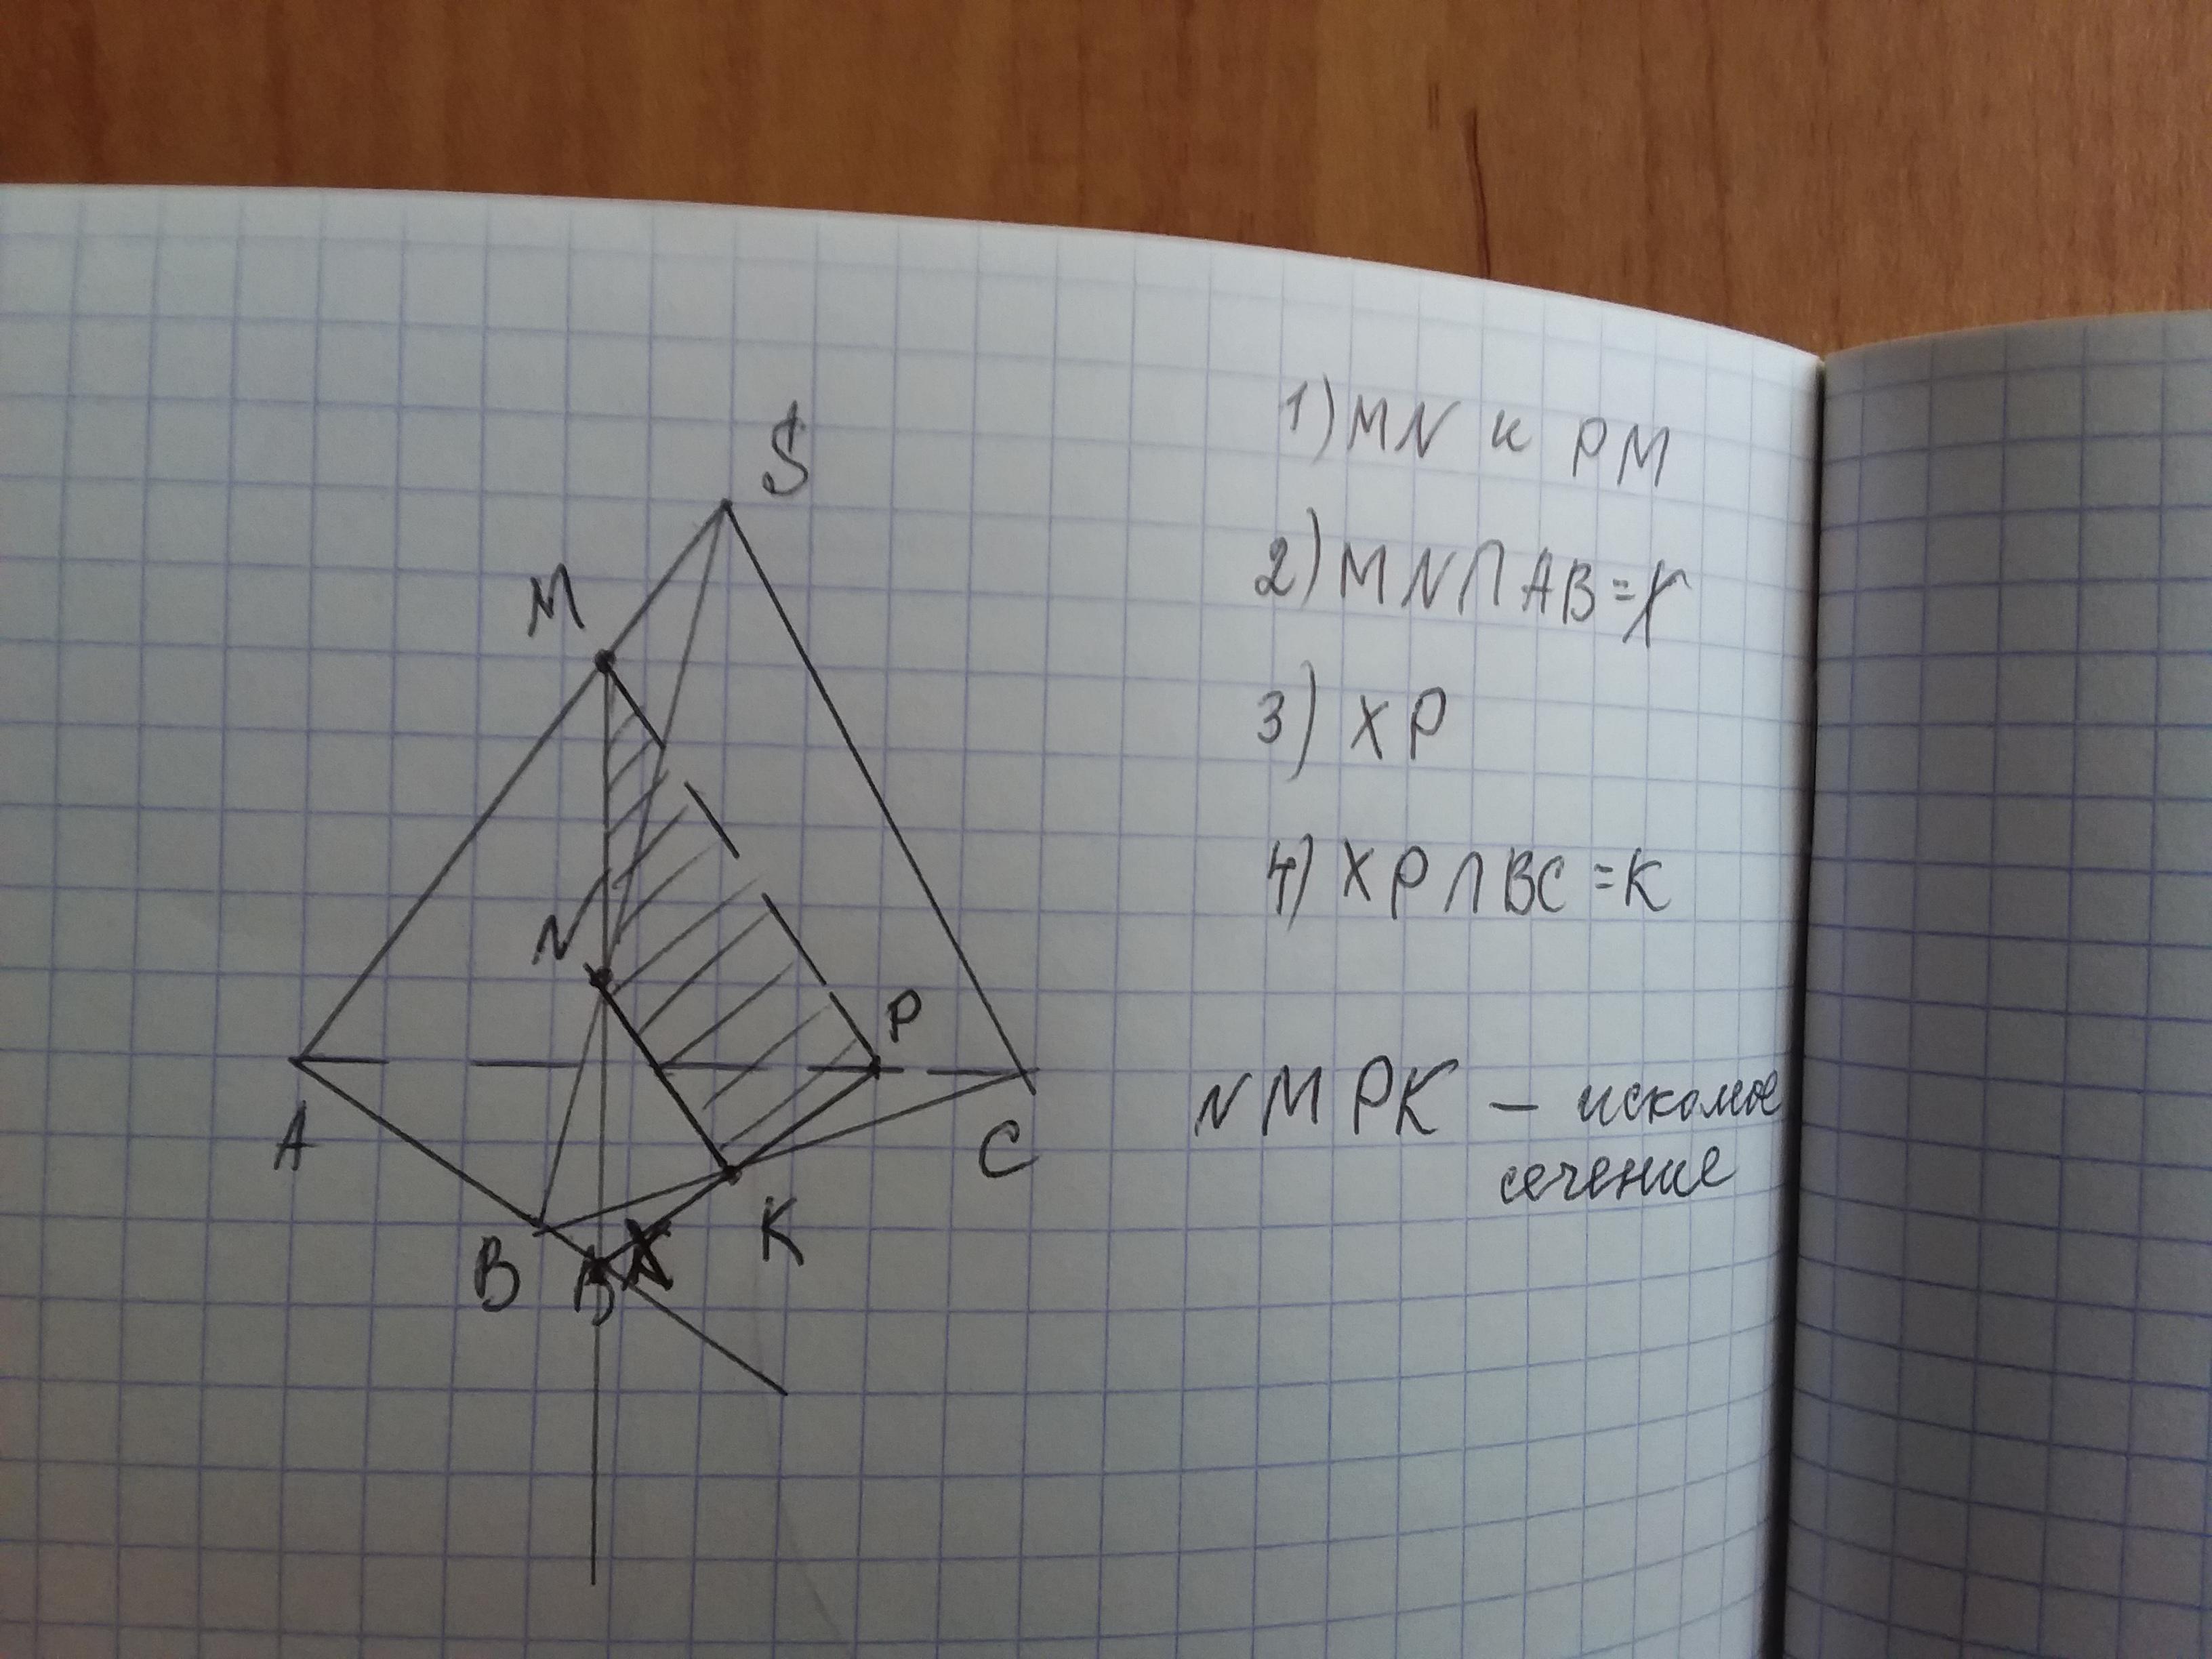 S
M
N
P
A
C
K
B
X
1) MN и PM
2) MN∩AB=X
3) XP
4) XP∩BC=K
NMPK — искомое
сечение